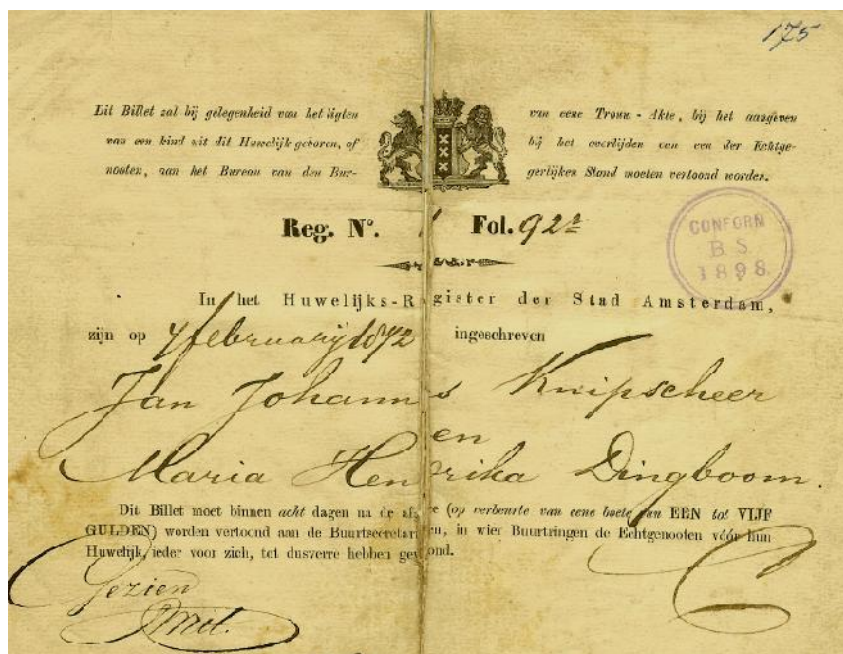 175
Dit Billet zal bij gelegenheid van het ligten van eene Trouw-Akte, bij het aangeven
van een kind uit dit Huwelijk geboren, of bij het overlijden van een der Echtge-
nooten, aan het Bureau van den Bur- gerlijken Stand moeten vertoond worden.
Reg. N°. 1 Fol. 92
CONFORM
B.S.
1898
In het Huwelijks-Register der Stad Amsterdam,
zijn op 7 february 1872 ingeschreven
Jan Johannes Knipscheer
en
Maria Hendrika Dingboom.
Dit Billet moet binnen acht dagen na de (op verbeurte van eene boete van EEN tot VIJF
GULDEN) worden vertoond aan de Buurtsecretarissen, in wier Buurtringen de Echtgenooten vóór hun
Huwelijk, ieder voor zich, tot dusverre hebben gewoond.
Gezien